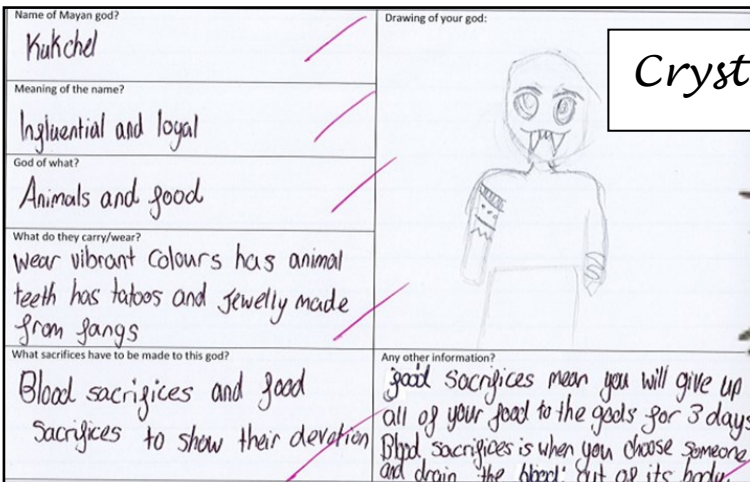 Name of Mayan god?
Kukchel
Meaning of the name?
Influential and loyal
God of what?
Animals and food
What do they carry/wear?
Wear vibrant colours has animal
teeth has tatoos and Jewelly made
from fangs
What sacrifices have to be made to this god?
Blood sacrifices and food
Sacrifices to show their devotion
Drawing of your god:
Cryst
Any other information?
food Sacrifices mean you will give up
all of your food to the gods for 3 days
Blood sacrifices is when you choose someone
and drain the blood out of its body